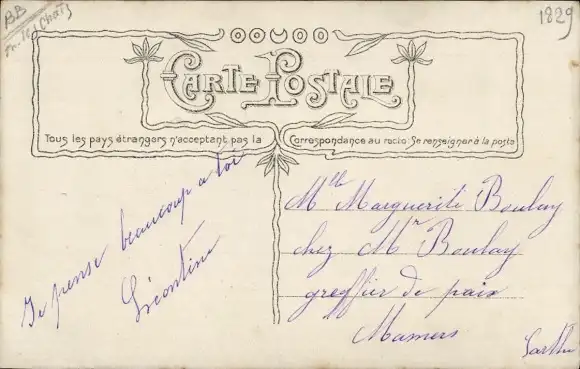 BB
1829
CARTE POSTALE
Tous les pays étrangers n'acceptant pas la Correspondance au recto. Se renseigner à la poste
Je pense beaucoup a toi
Léontine
Mlle Marguerite Boulay
chez Mr Boulay
greffier de paix
Mamers
Sarthe